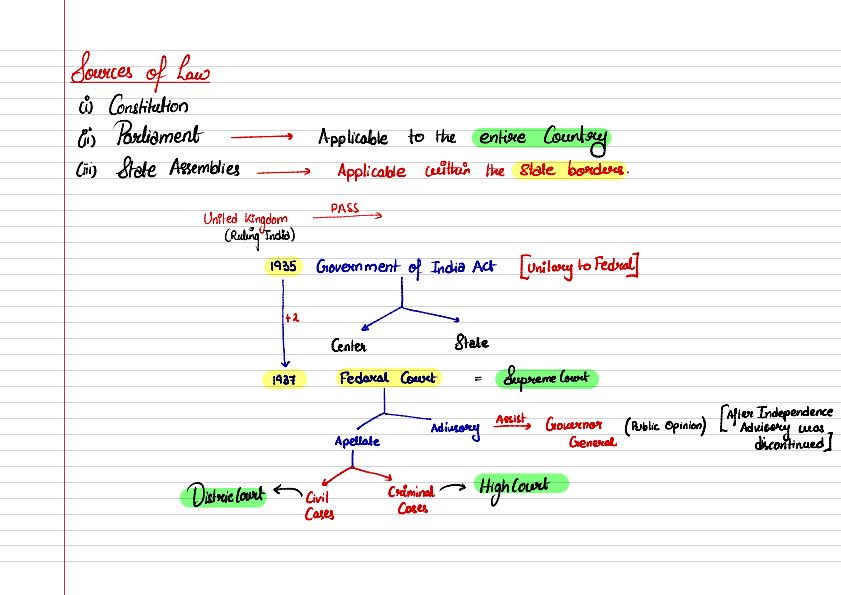 Sources of Law
(i) Constitution
(ii) Parliament → Applicable to the entire Country
(iii) State Assemblies → Applicable within the State borders.
United Kingdom PASS →
(Ruling India)
1935 Government of India Act [Unitary to Fedral]
+2
Center State
1937 Federal Court = Supreme Court
Apellate Advisory Assist → Governor General (Public Opinion) [After Independence Advisory was discontinued]
Distric Court ← Civil Cases Criminal Cases → High Court